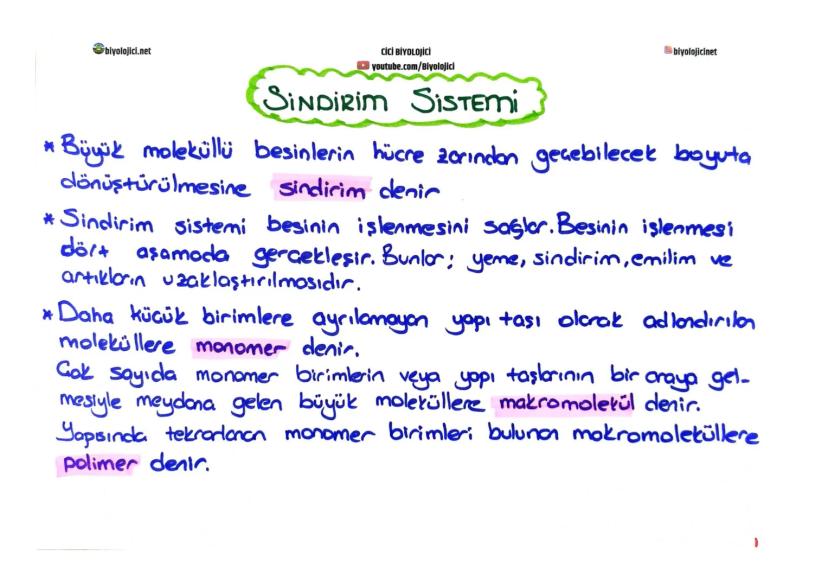 biyolojici.net
CİCİ BİYOLOJİCİ
youtube.com/Biyolojici
biyolojicinet
SİNDİRİM SİSTEMİ
* Büyük moleküllü besinlerin hücre zarından geçebilecek boyuta
dönüştürülmesine sindirim denir
* Sindirim sistemi besinin işlenmesini sağlar. Besinin işlenmesi
dört aşamada gerçekleşir. Bunlar; yeme, sindirim, emilim ve
artıkların uzaklaştırılmasıdır.
* Daha küçük birimlere ayrılamayan yapı taşı olarak adlandırılan
moleküllere monomer denir.
Çok sayıda monomer birimlerin veya yapı taşlarının bir araya gel-
mesiyle meydana gelen büyük moleküllere makromolekül denir.
Yapısında tekrarlanan monomer birimleri bulunan makromoleküllere
polimer denir.